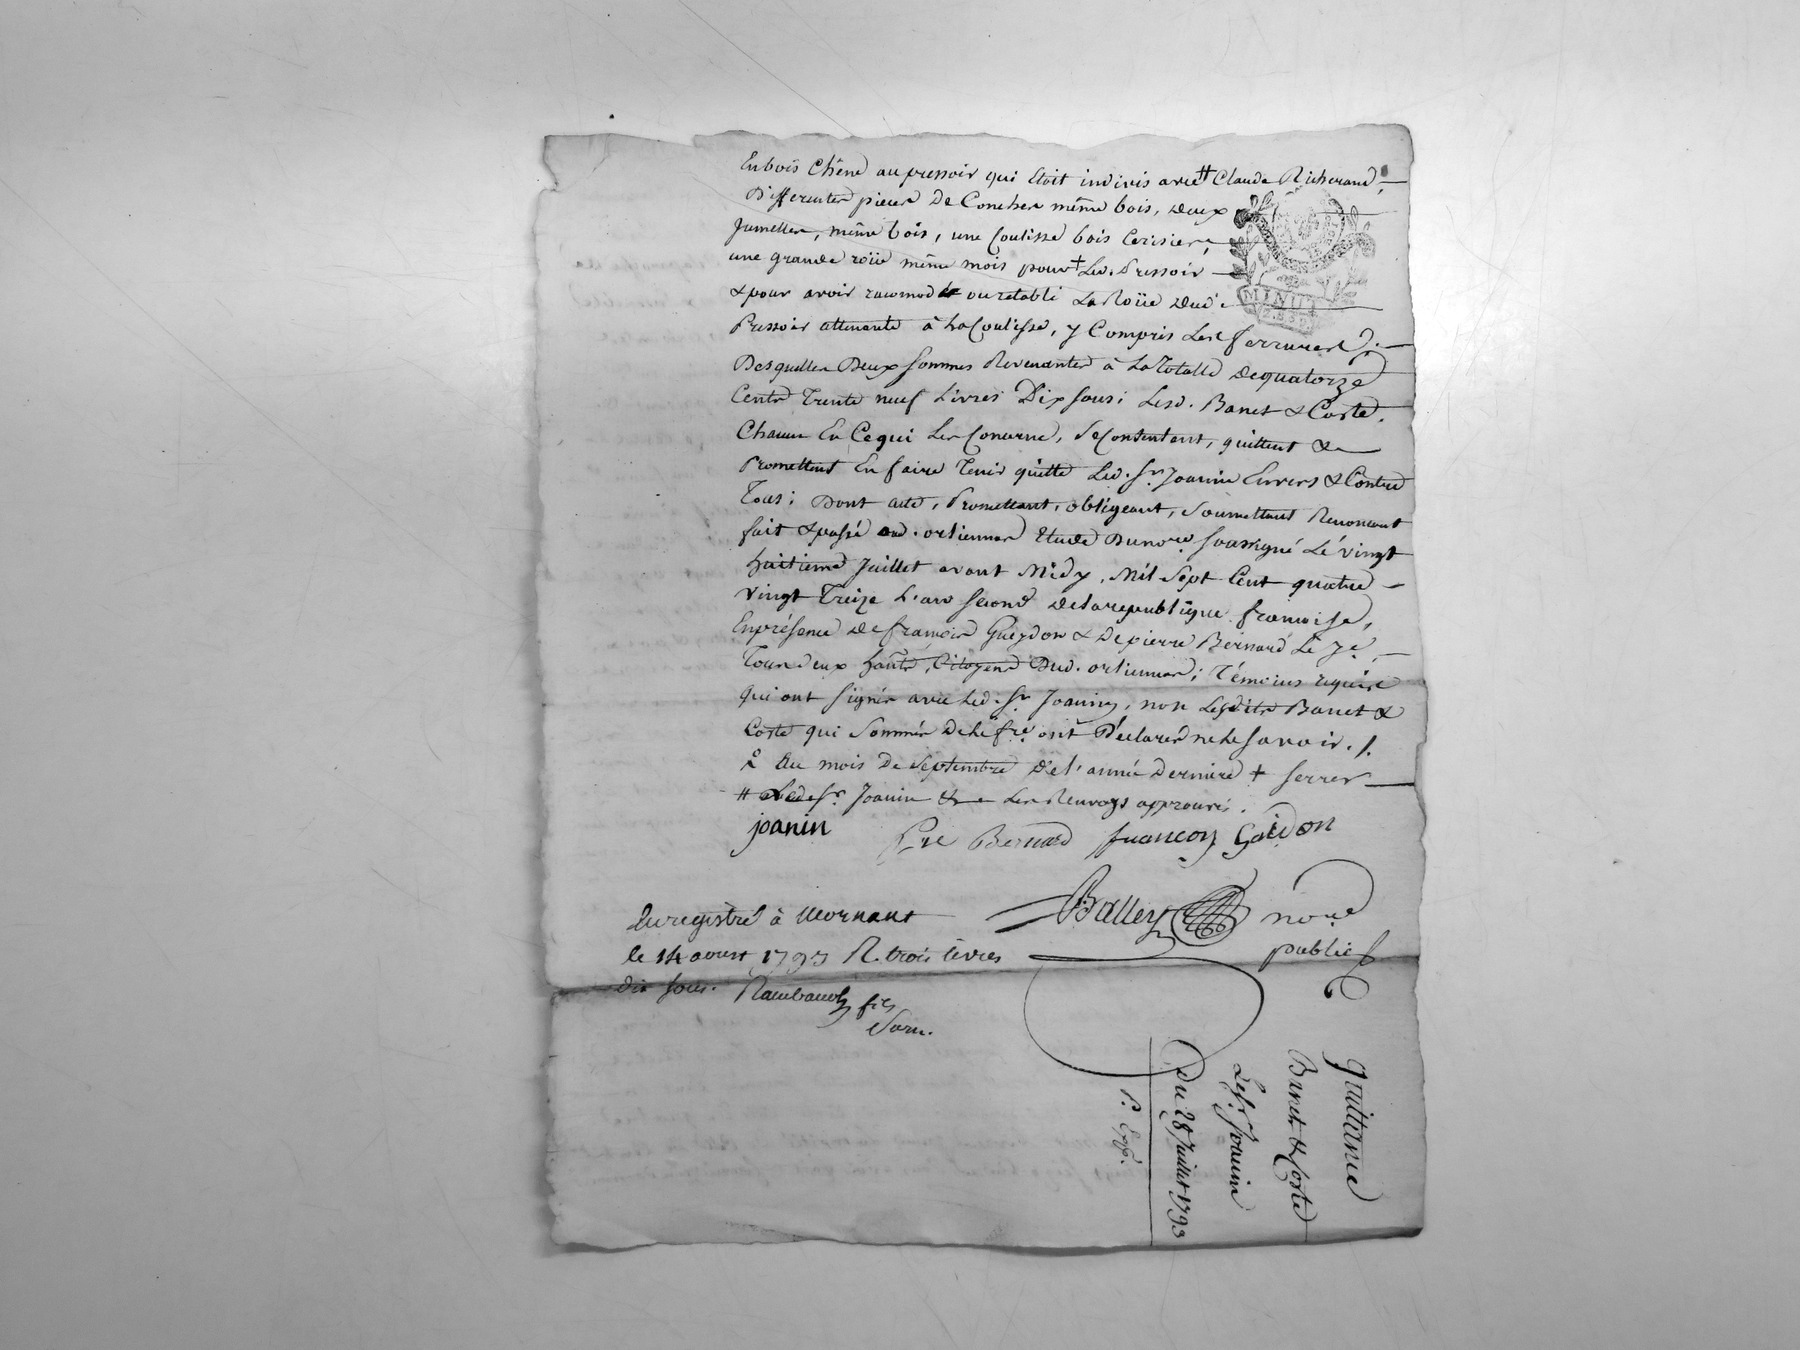 En bois Chêne au pressoir qui Etoit indivis avec # Claude Richerand,
Differentes pieces De Couches même bois, deux
Jumelles, même bois, une Coulisse bois Cerisier,
une grande roüe même mois pour + Led. Pressoir
& pour avoir racomodé ou retabli La Roüe dud.
Pressoir attenante à La Coulisse, y Compris Les ferrures ;
MINUT
Desquelles Deux Sommes Revenantes à La Totalle de quatorze
Cents Trente neuf Livres Dix sous ; Lesd. Banet & Coste
Chacun En Ce qui Les Concerne, Se Contentent, quittent &
Promettent En faire Tenir quitte Led. Sr. Joanin Envers & Contre
Tous ; Dont acte, Promettant, obligeant, Soumettant Renoncant
fait & passé aud. orlienas Etude Du nore. soussigné Le vingt
huitieme Juillet avant Midy, Mil Sept Cent quatre
vingt Treize L'an Second de la republique francoise,
En présence de francois Gueydon & De pierre Bernard Le Je.,
Tous deux hants, Citoyens Dud. orlienas ; Témoins requis
qui ont Signés avec Led. Sr. Joanin, non Lesdits Banet &
Coste qui Sommés De Le fre. ont Déclarés ne Le Savoir . /.
Au mois De Septembre De L'année Derniere + serrer
# Led. Sr. Joanin & Les Renvoys approuvés.
joanin
Pre Bernard francoy Gaidon
Balley nore
public
Enregistré à Mornant
le 14 aoust 1793 R. trois livres
dix sous. Raimbaud fils
quittance
Banet & Coste
Le Sr. Joanin
Du 28 Juillet 1793
P. Exp.